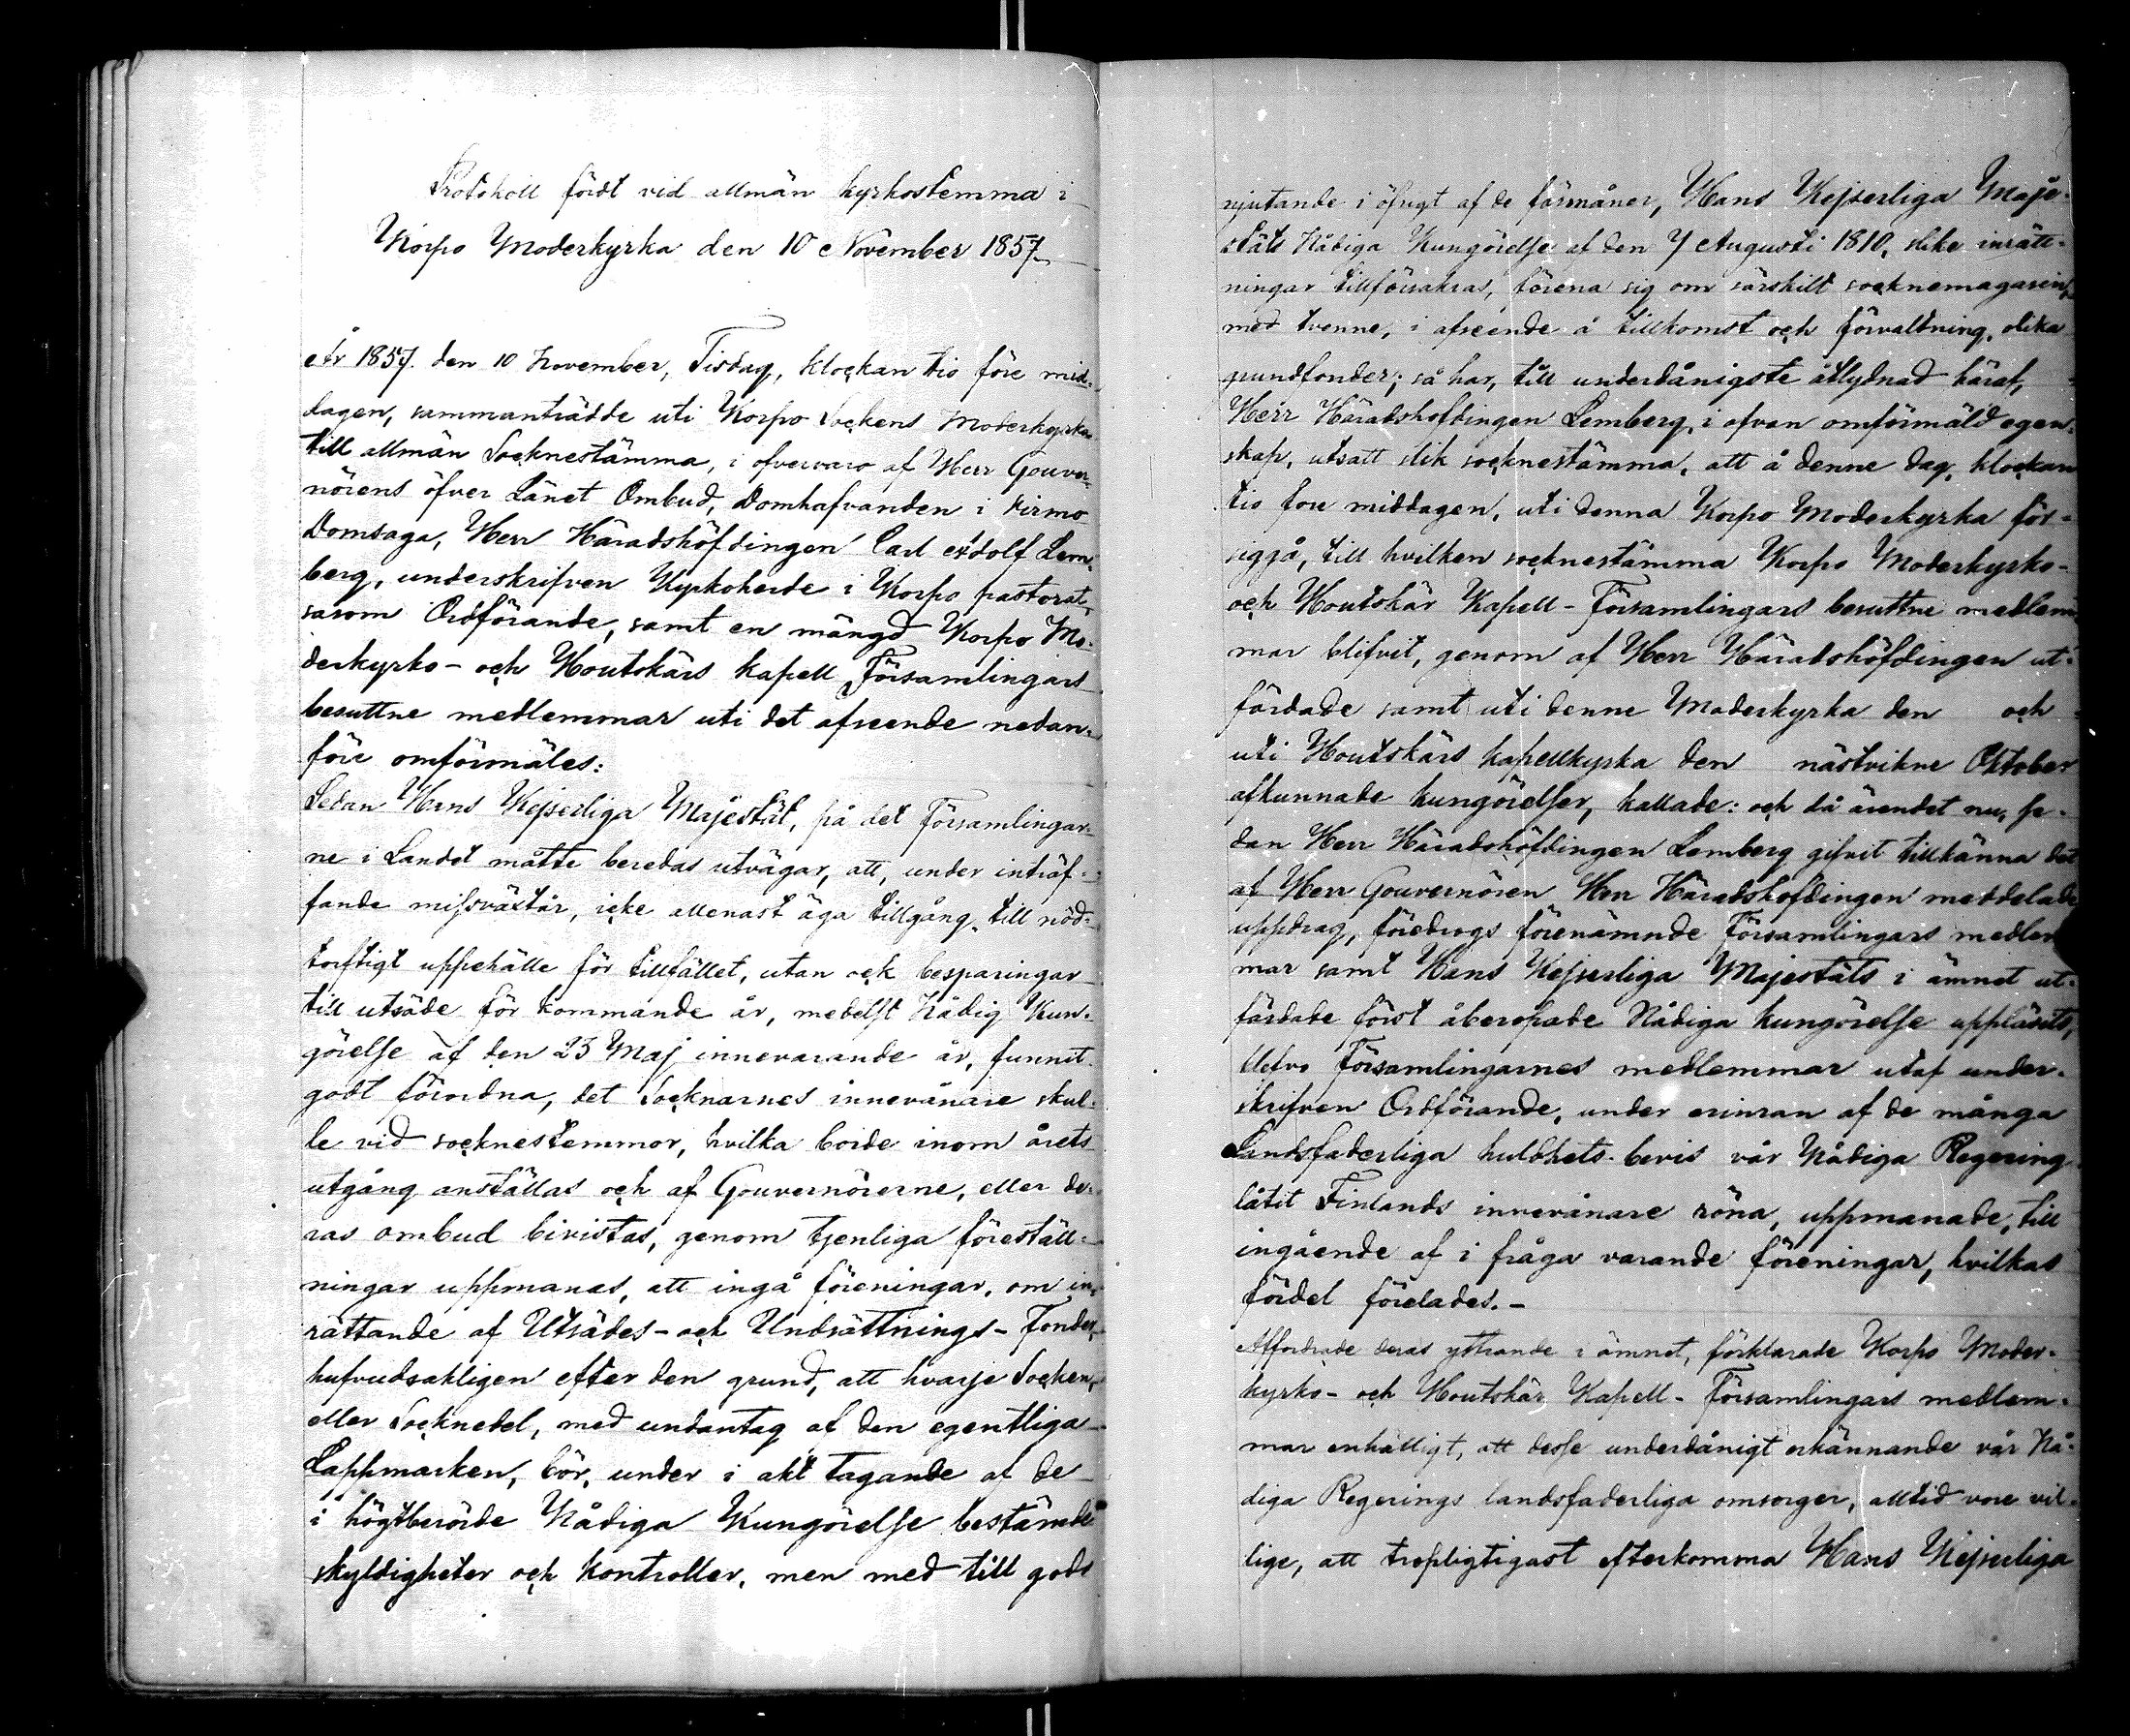 Protokoll fördt vid allmän kyrkostemma i
Korpo Moderkyrka den 10 November 1857
År 1857. den 10 November, Tisdag, klockan tio före mid-
dagen, sammanträdde uti Korpo Sockens Moderkyrka
till allmän Socknestämma, i öfvervaro af Herr Gouver-
nörens öfver Länet Ombud, Domhafvanden i Virmo
Domsaga, Herr Häradshöfdingen Carl Adolf Lem-
berg, underskrifven Kyrkoherde i Korpo pastorat,
såsom Ordförande, samt en mängd Korpo Mo-
derkyrko- och Houtskärs kapell Församlingars
besuttne medlemmar uti det afseende nedan-
före omförmäles:
Sedan Hans Kejserliga Majestät, på det Församlingar-
ne i Landet måtte beredas utvägar, att, under inträf-
fande missväxtår, icke allenast äga tillgång till nöd-
torftigt uppehälle för tillfället, utan ock besparingar
till utsäde för kommande år, medelst Nådig Kun-
görelse af den 23 Maj innevarande år, funnit
godt förordna, det Socknarnes innevånare skul-
le vid socknestemmor, hvilka borde inom årets
utgång anställas och af Gouvernörerne, eller de-
ras ombud bivistas, genom tjenliga föreställ-
ningar uppmanas, att ingå föreningar, om in-
rättande af Utsädes- och Undsättnings- Fonder,
hufvudsakligen efter den grund, att hvarje Socken,
eller Socknedel, med undantag af den egentliga
Lappmarken, bör, under i akt tagande af de
i högtberörde Nådiga Kungörelse bestämde
skyldigheter och kontroller, men med till godo
njutande i öfrigt af de förmåner, Hans Kejserliga Maje-
stäts Nådiga Kungörelse af den 7 Augusti 1810, slike inrätt-
ningar tillförsäkras, förena sig om särskilt socknemagasin,
med tvenne, i afseende å tillkomst och förvaltning, olika
grundfonder; så har, till underdånigste åtlydnad häraf,
Herr Häradshöfdingen Lemberg, i ofvan omförmäld egen-
skap, utsatt slik socknestämma, att å denne dag, klockan
tio före middagen, uti denna Korpo Moderkyrka för-
siggå, till hvilken socknestämma Korpo Moderkyrko-
och Houtskär Kapell- Församlingars besuttne medlem-
mar blifvit, genom af Herr Häradshöfdingen ut-
färdade samt uti denne Moderkyrka den och
uti Houtskärs kapellkyrka den nästvikne Oktober
afkunnade kungörelser, kallade: och då ärendet nu, se-
dan Herr Häradshöfdingen Lemberg gifvit tillkänna det
af Herr Gouvernören Herr Häradshöfdingen meddelade
uppdrag, föredrogs förenämnde Församlingars medlem
mar samt Hans Kejserliga Majestäts i ämnet ut-
färdade först åberopade Nådiga kungörelse upplästs,
blefvo Församlingarnes medlemmar utaf under-
skrifven Ordförande, under erinran af de många
Landsfaderliga huldhets- bevis vår Nådiga Regering
låtit Finlands innevånare röna, uppmanade, till
ingående af i fråga varande föreningar, hvilkas
fördel förelades. -
Affordrade deras yttrande i ämnet, förklarade Korpo Moder-
kyrko- och Houtskär Kapell- Församlingars medlem-
mar enhälligt, att desse underdånigt erkännande vår Nå-
diga Regerings landsfaderliga omsorger, alltid vore vil-
lige, att tropligtigast efterkomma Hans Kejserliga